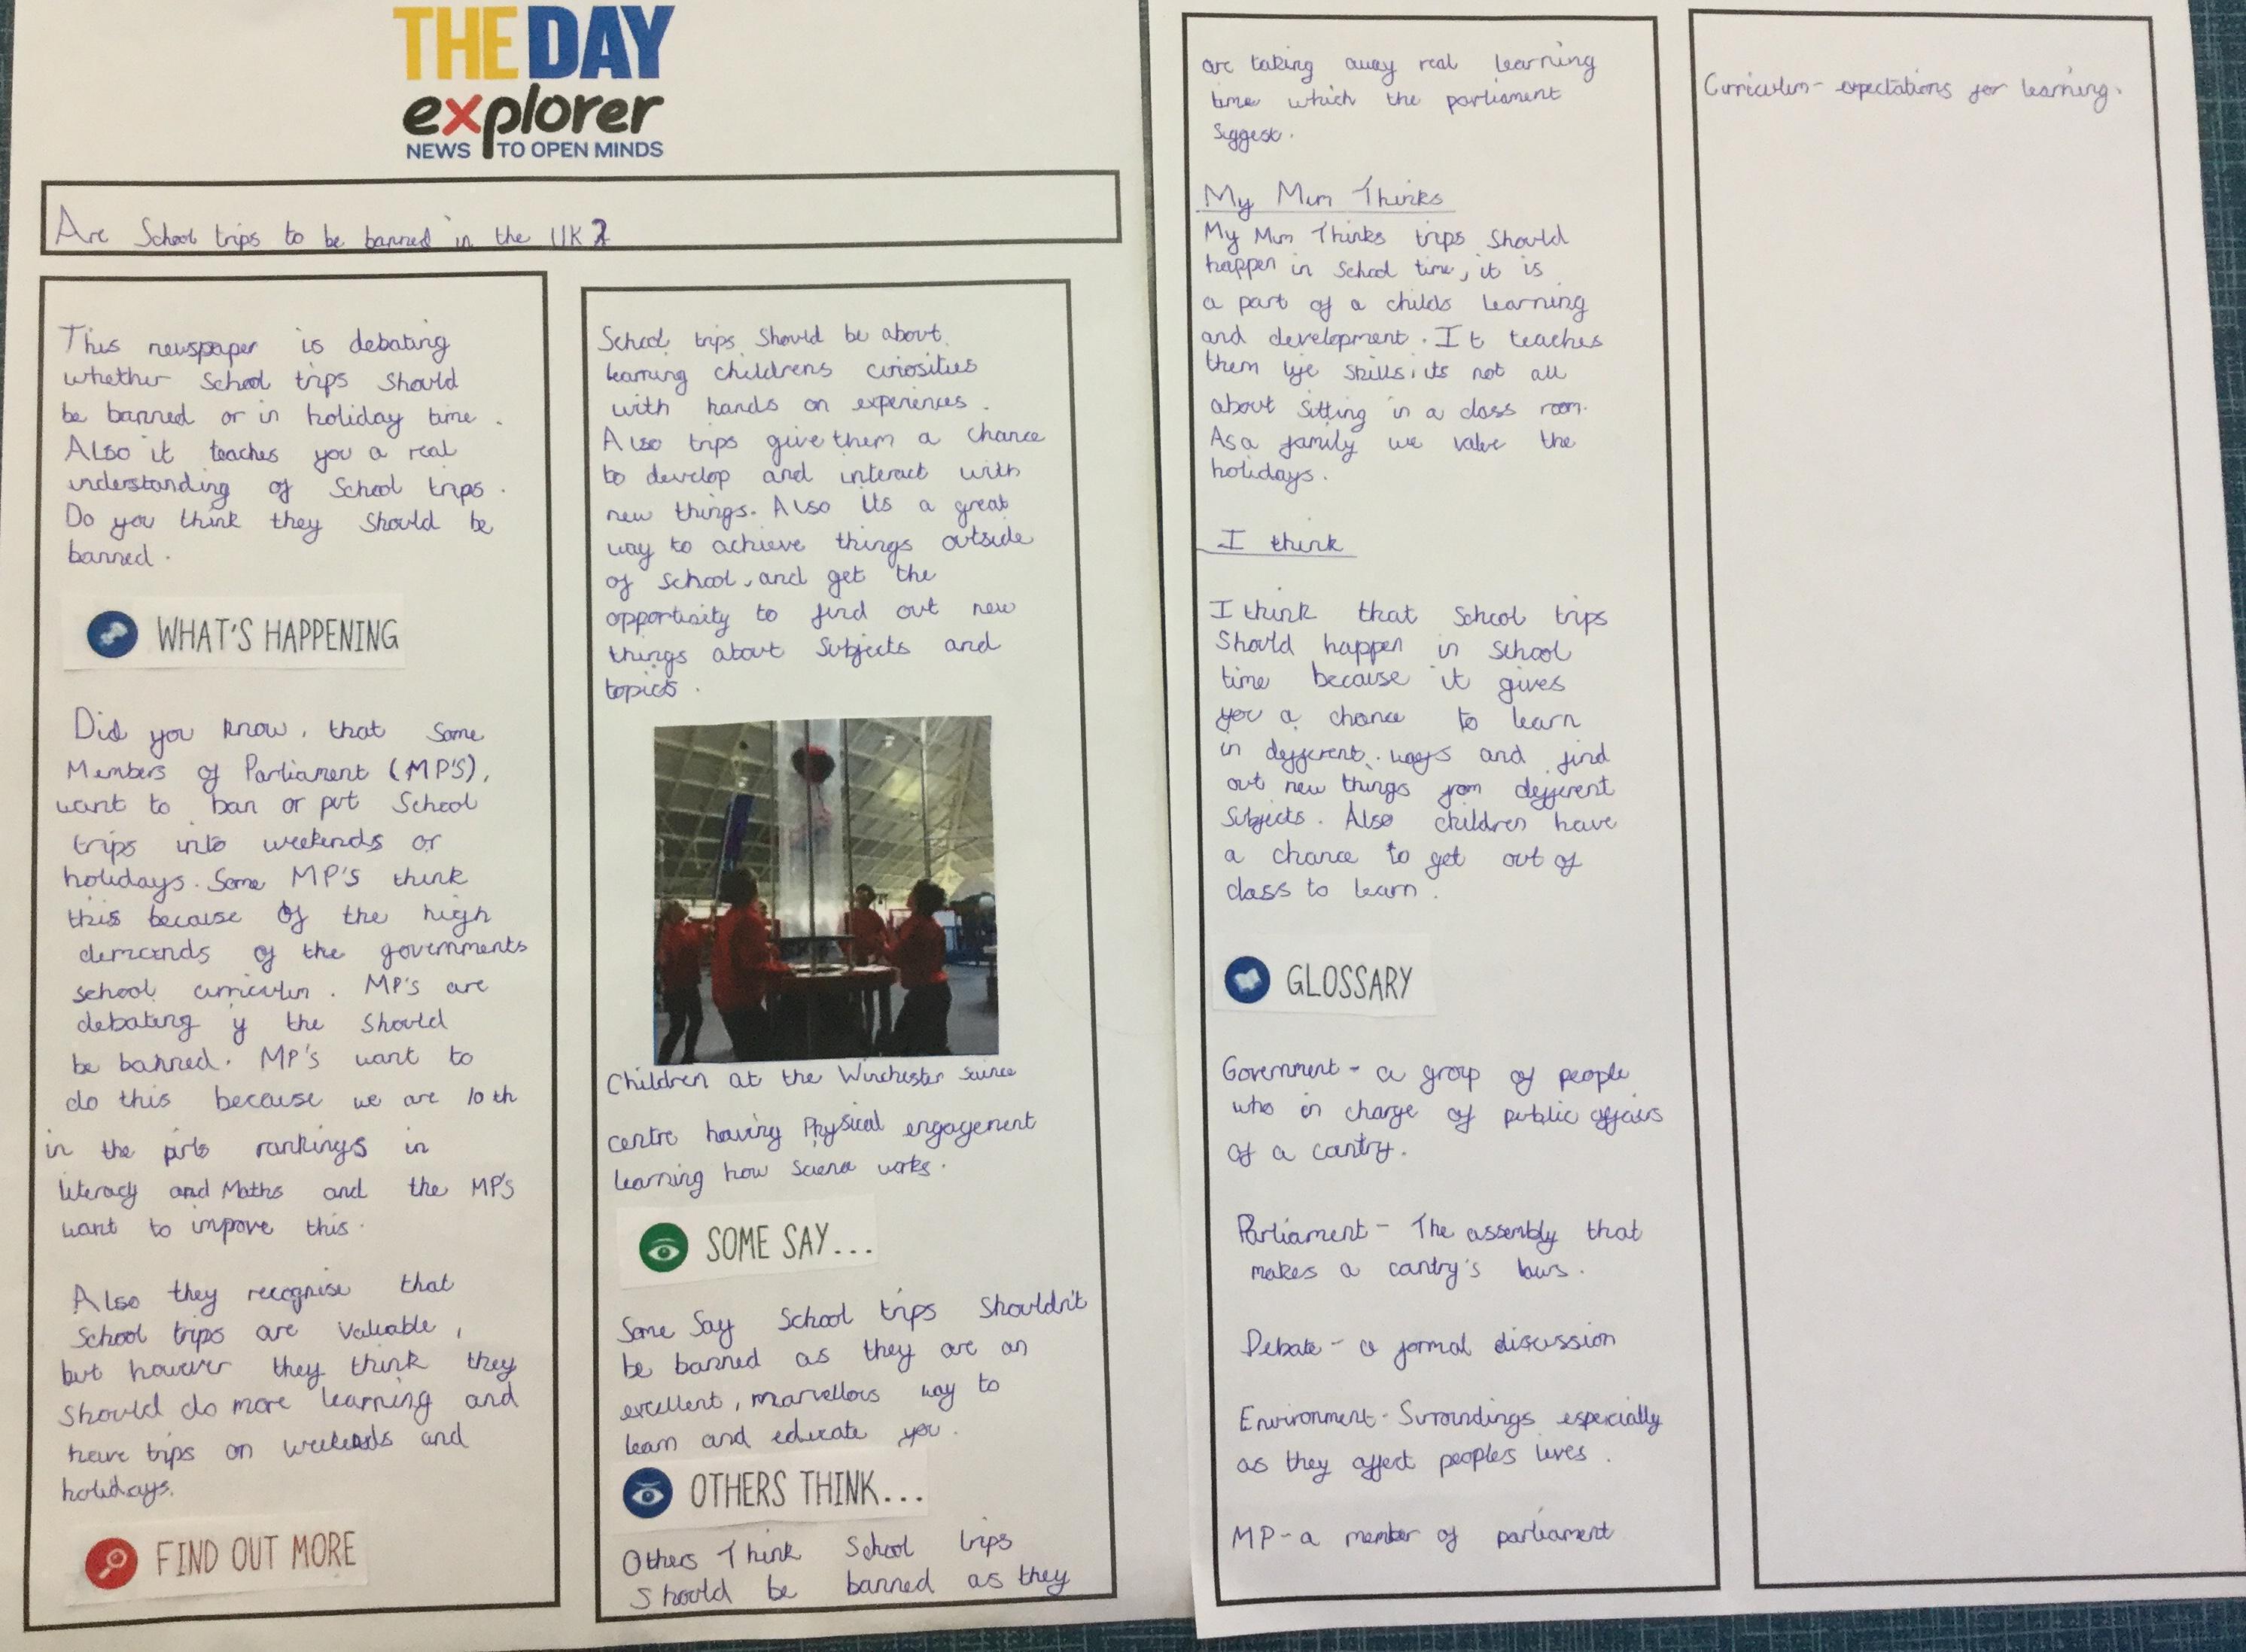 THE DAY
explorer
NEWS TO OPEN MINDS
Are School trips to be banned in the UK?
This newspaper is debating
whether School trips Should
be banned or in holiday time.
Also it teaches you a real
understanding of School trips.
Do you think they Should be
banned.
WHAT'S HAPPENING
Did you know, that Some
Members of Parliament (MP'S),
want to ban or put School
trips into weekends or
holidays. Some MP'S think
this because of the high
demands of the governments
school curriculum. MP's are
debating if the Should
be banned. MP's want to
do this because we are 10th
in the pirls rankings in
literacy and Maths and the MP's
want to improve this.
Also they recognise that
School trips are valuable,
but however they think they
Should do more learning and
have trips on weekends and
holidays.
FIND OUT MORE
School trips Should be about
learning childrens curiosities
with hands on experiences.
Also trips give them a chance
to develop and interact with
new things. Also its a great
way to achieve things outside
of school, and get the
opportunity to find out new
things about Subjects and
topics.
Children at the Winchester science
centre having Physical engagement
learning how science works.
SOME SAY...
Some Say School trips Shouldn't
be banned as they are an
excellent, marvellous way to
learn and educate you.
OTHERS THINK...
Others Think School trips
Should be banned as they
are taking away real learning
time which the parliament
suggest.
My Mum Thinks
My Mum Thinks trips Should
happen in School time, it is
a part of a childs learning
and development. It teaches
them life skills, its not all
about sitting in a class room.
As a family we value the
holidays.
I think
I think that School trips
Should happen in School
time because it gives
you a chance to learn
in defferent ways and find
out new things from defferent
Subjects. Also children have
a chance to get out of
class to learn.
GLOSSARY
Government - a group of people
who in charge of public affairs
of a cantry.
Parliament - The assembly that
makes a cantry's laws.
Debate - a formal discussion
Environment - Surroundings especially
as they affect peoples lives.
MP - a member of parliament
Curriculum - expectations for learning.